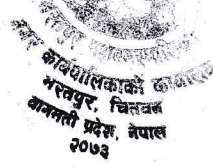 नगर कार्यपालिकाको कार्यालय
भरतपुर, चितवन
बागमती प्रदेश, नेपाल
२०७३